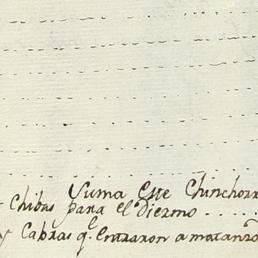 Suma Este Chinchorr
Chibas para el Diezmo
y Cabras q. entraron a matanza